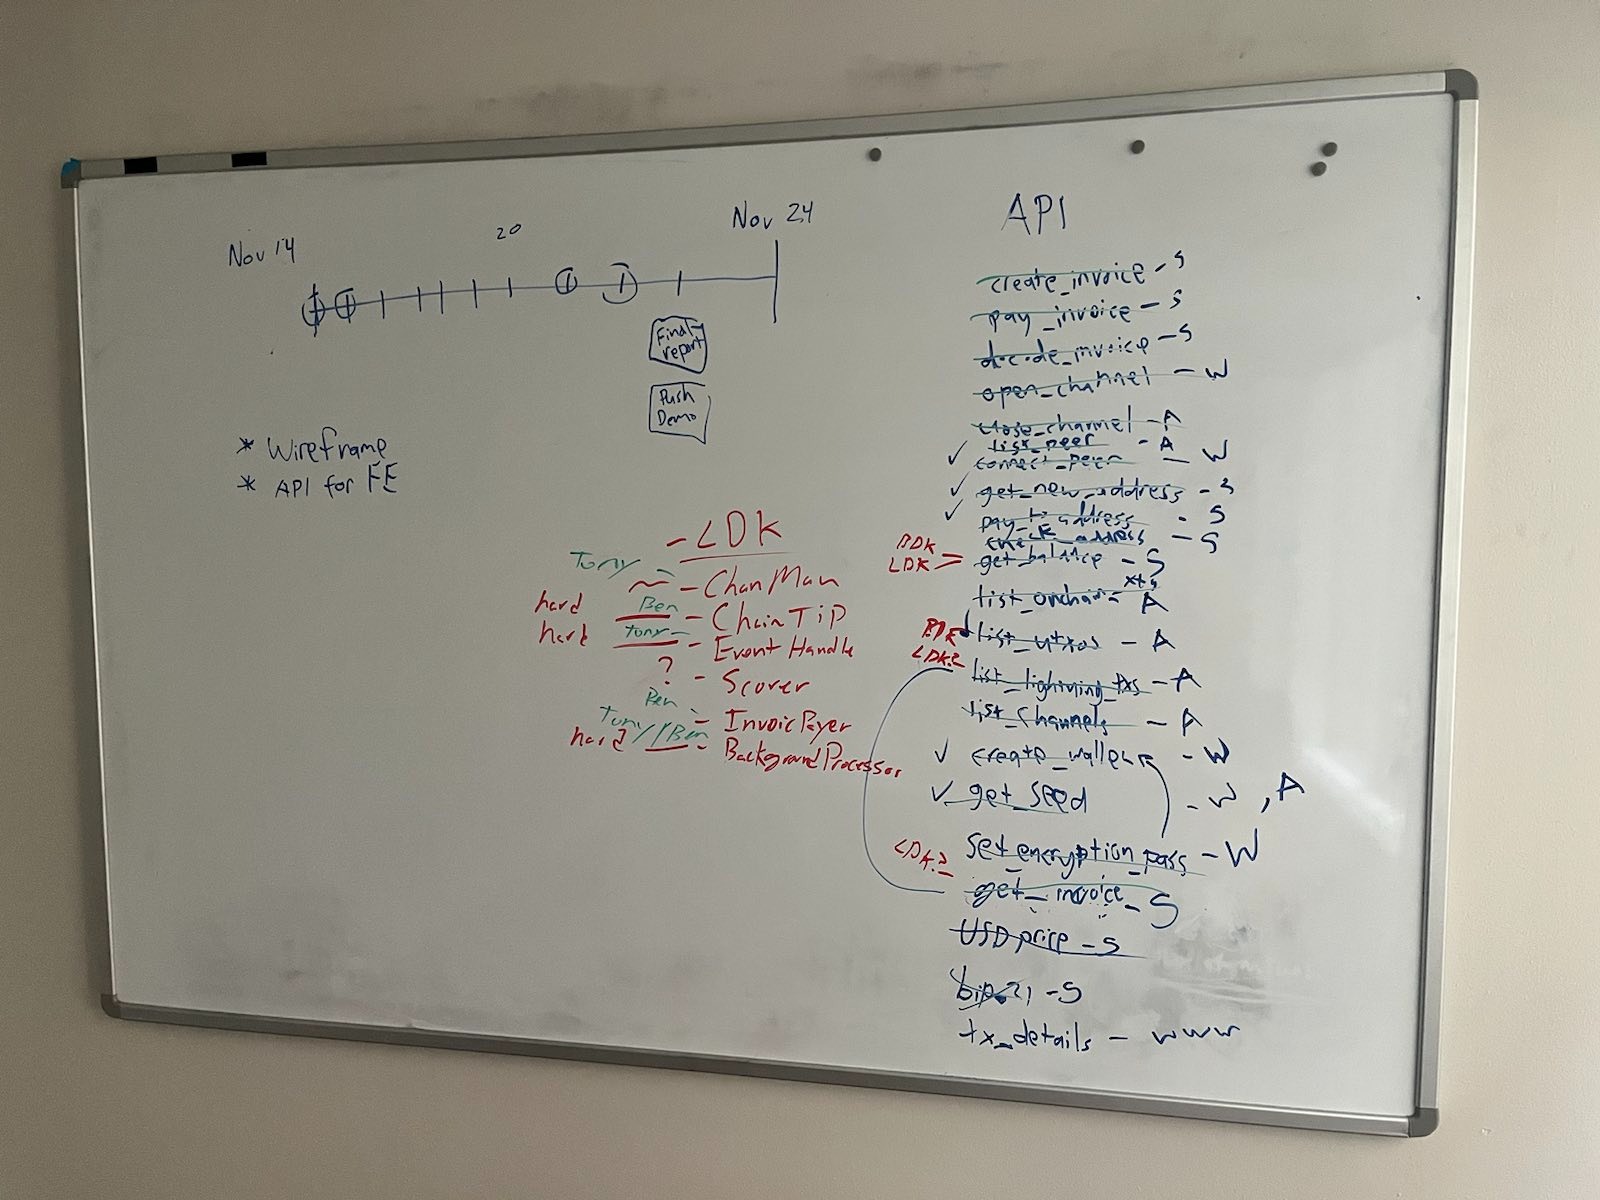 Nov 14
20
Nov 24
Final report
Push Demo
* Wireframe
* API for FE
- LDK
Tony ~ - ChanMan
hard Ben - ChainTiP
hard Tony - Event Handle
? - Scorer
Ben - InvoicPayer
hard Tony//Ben - BackgroundProcessor
API
create_invoice - S
pay_invoice - S
decode_invoice - S
open_channel - W
close_channel - A
list_peer - A
✓ connect_peer - W
✓ get_new_address - S
✓ pay_to_address - S
check_address - S
BDK
LDK = get_balance - S
list_onchain_txs - A
BDK
LDK? list_utxos - A
list_lightning_txs - A
list_channels - A
✓ create_wallet - W
✓ get_seed - W, A
LDK? set_encryption_pass - W
get_invoice - S
USD price - S
bip21 - S
tx_details - www